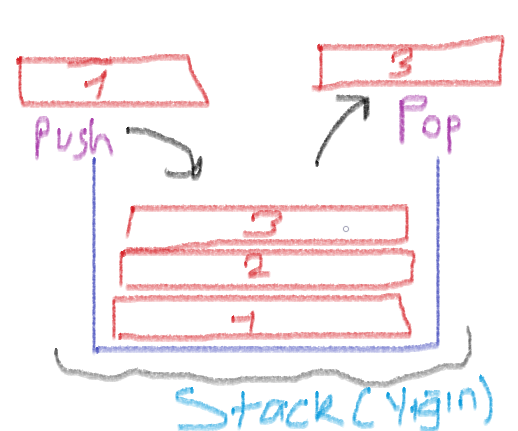 1
3
Push
Pop
3
2
1
Stack (Yığın)